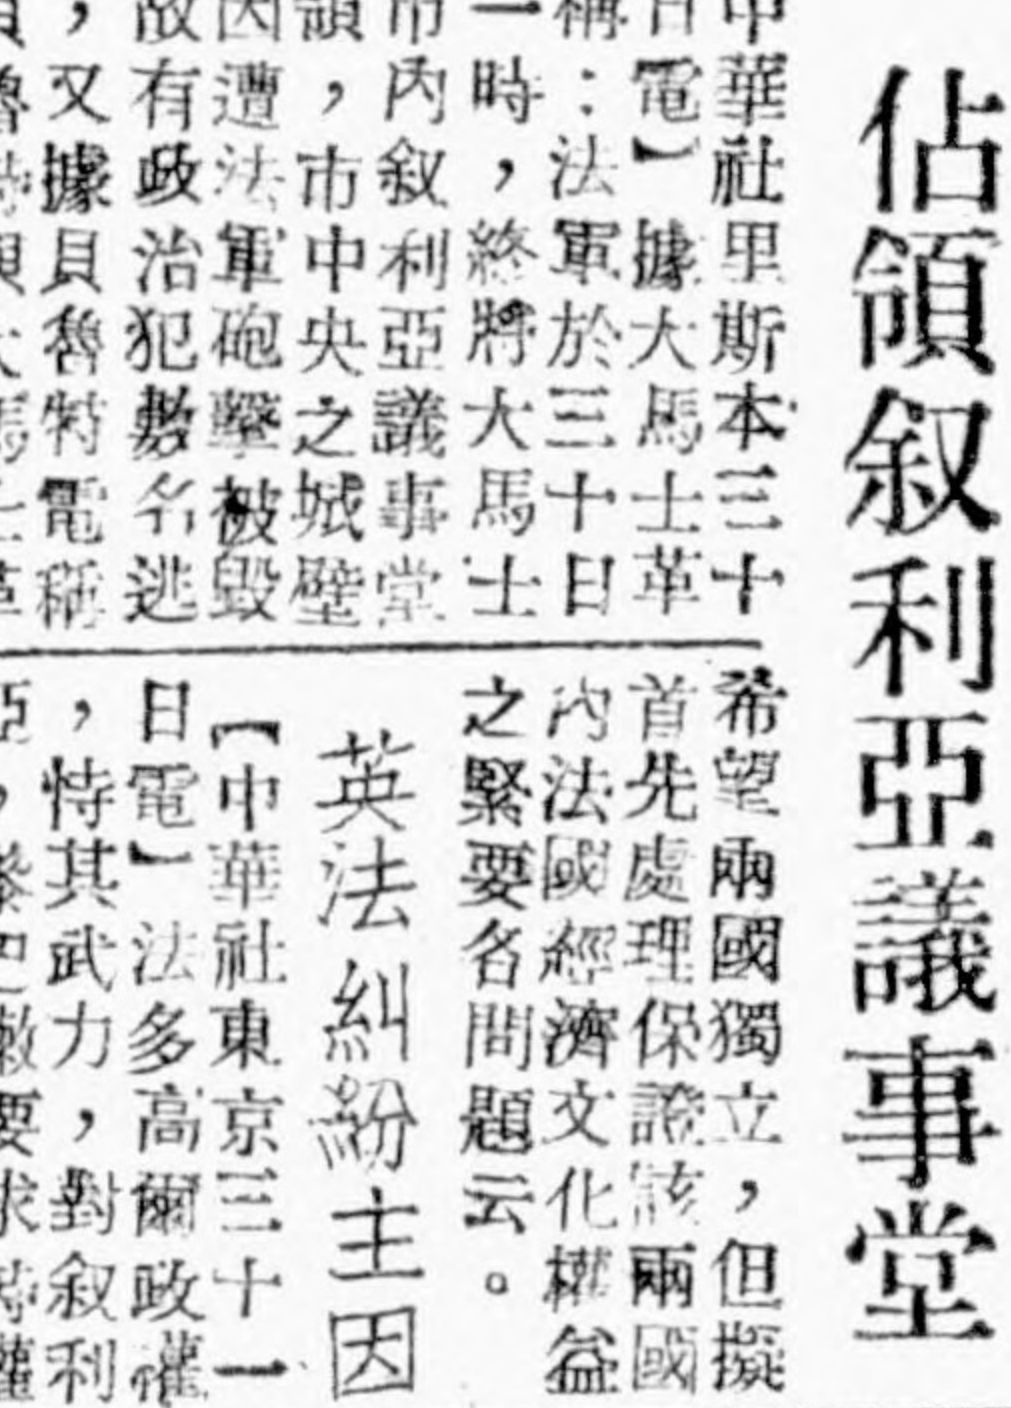 佔領叙利亞議事堂
中華社里斯本三十
日電】據大馬士革
稱：法軍於三十日
一時，終將大馬士
市內叙利亞議事堂
領，市中央之城壁
因遭法軍砲擊被毀
故有政治犯數名逃
，又據貝魯特電稱
希望兩國獨立，但擬
首先處理保證該兩國
內法國經濟文化權益
之緊要各問題云。
英法糾紛主因
【中華社東京三十一
日電】法多高爾政權
，恃其武力，對叙利